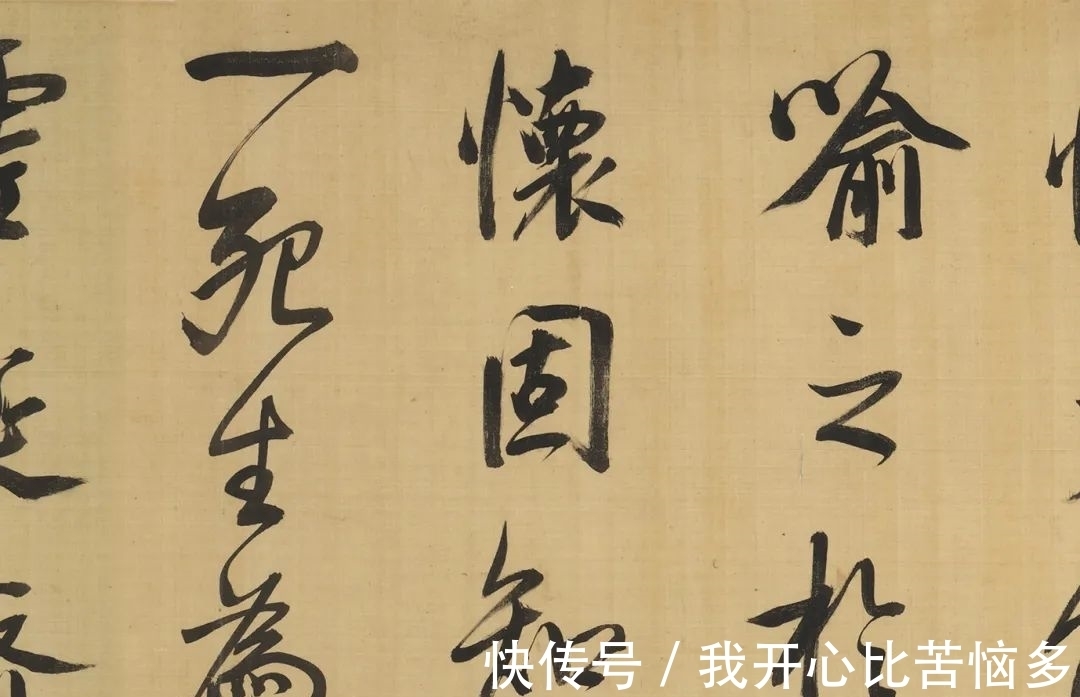 喻之於
懷固知
一死生為
快传号 / 我开心比苦恼多